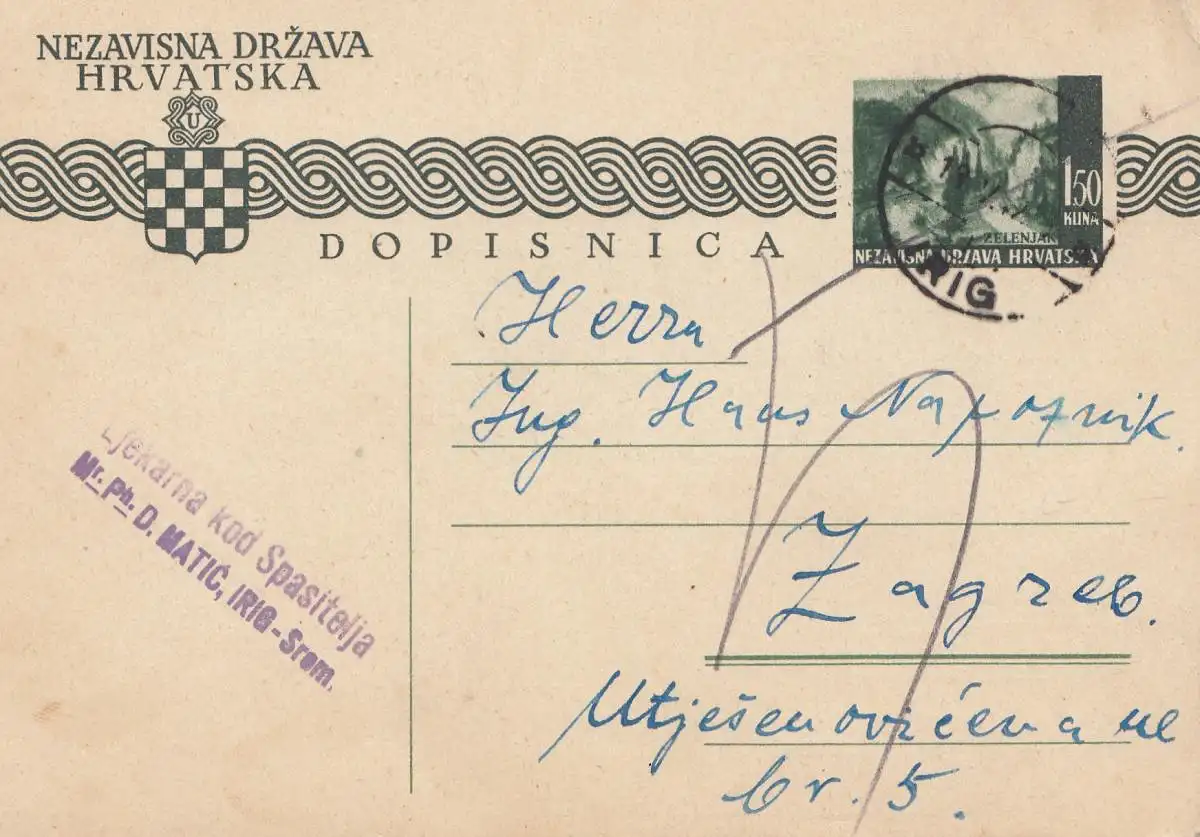 NEZAVISNA DRŽAVA
HRVATSKA
U
DOPISNICA
150
KUNA
ZELENJAK
NEZAVISNA DRŽAVA HRVATSKA
IRIG
Herrn
Ing. Hans Napotnik.
Zagreb.
Utješenovićeva ul
br. 5.
Ljekarna kod Spasitelja
Mr. Ph. D. MATIĆ, IRIG-Srem.